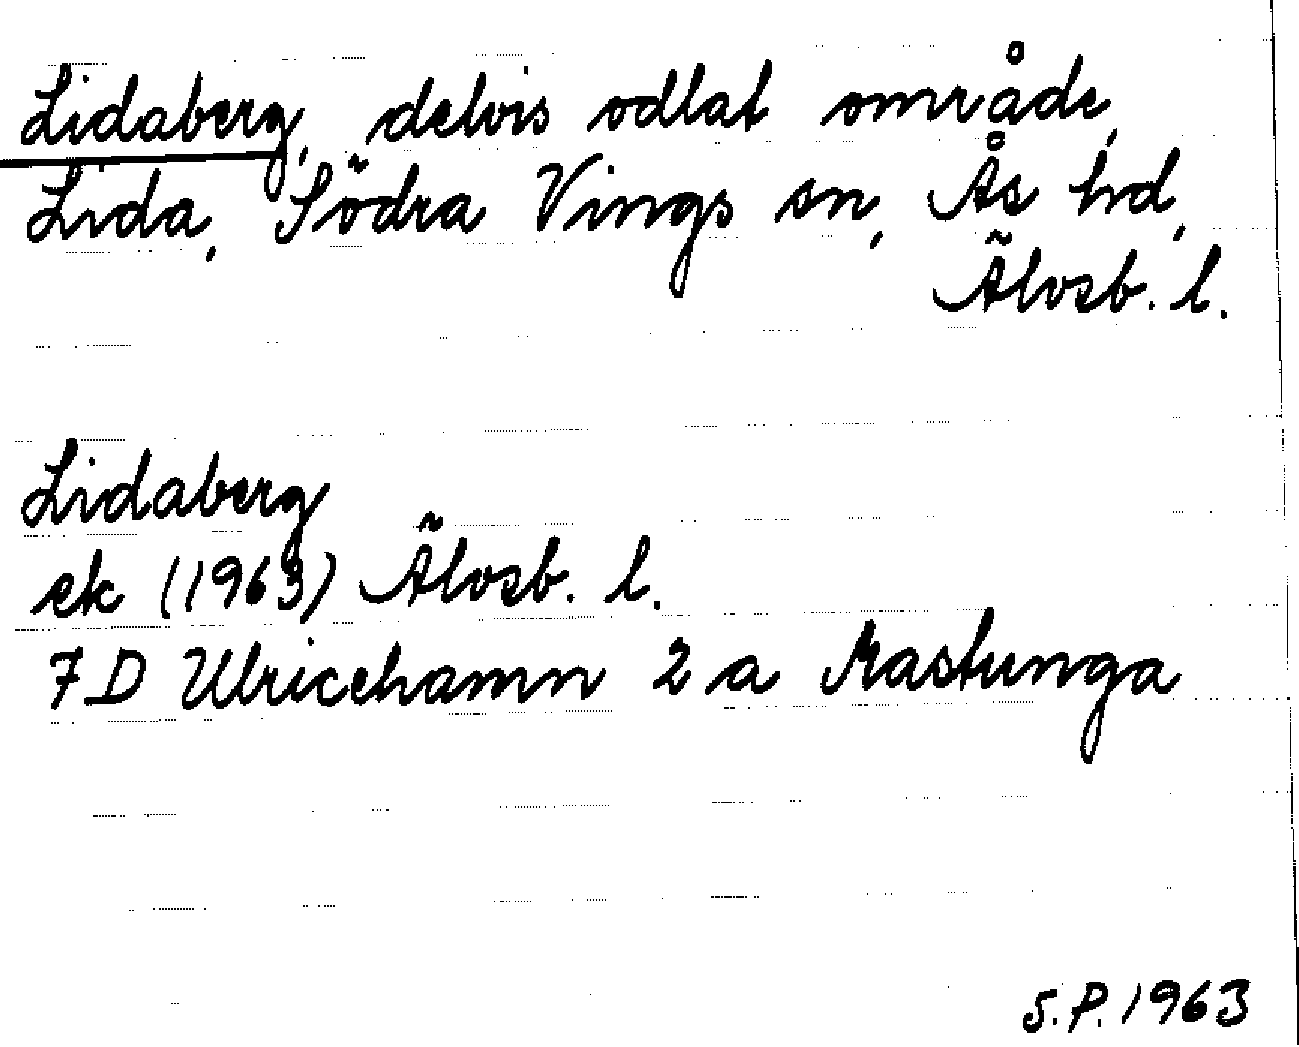 Lidaberg, delvis odlat område,
Lida, Södra Vings sn, Ås hd,
Älvsb. l.
Lidaberg
ek (1963) Älvsb. l.
7D Ulricehamn 2a Mastunga
S.P. 1963